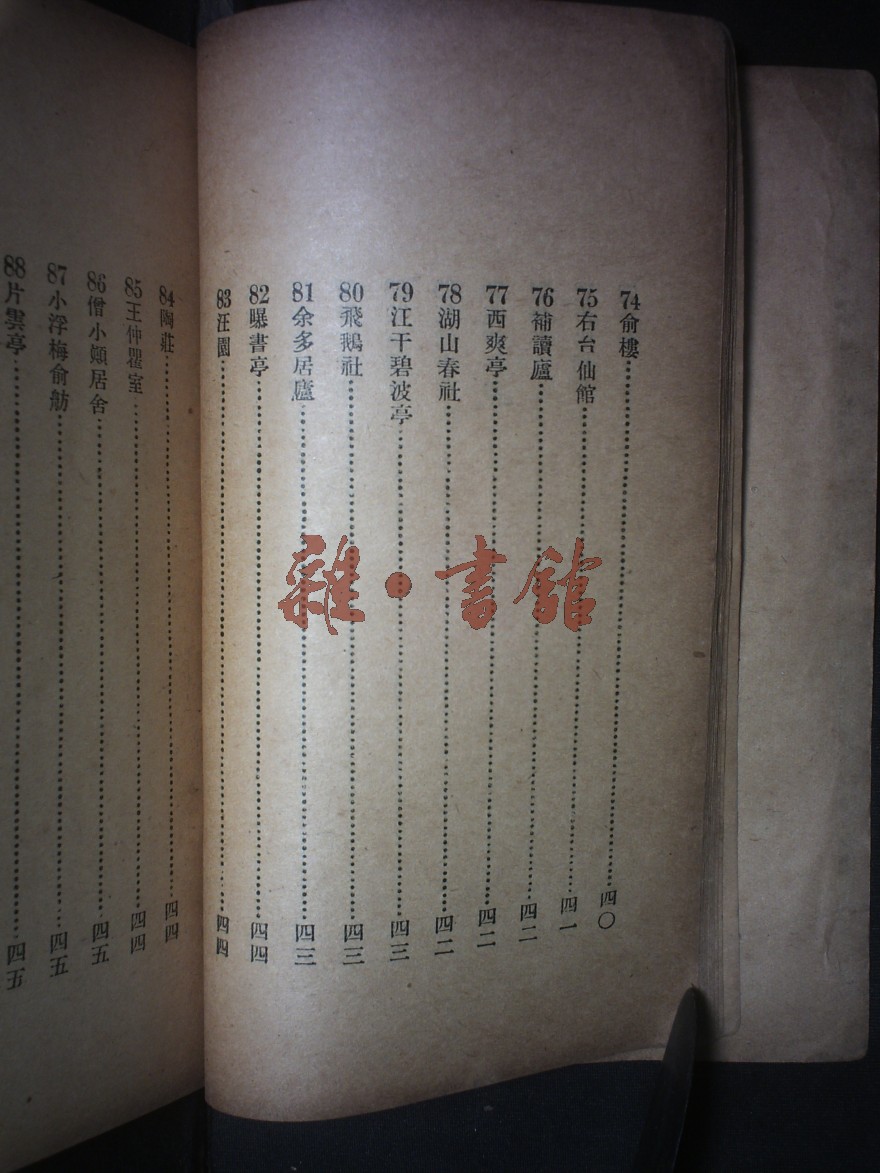 74俞樓……四〇
75右台仙館……四一
76補讀廬……四二
77西爽亭……四二
78湖山春社……四二
79江干碧波亭……四三
80飛鵝社……四三
81余多居廬……四三
82曝書亭……四四
83汪園……四四
84陶莊……四四
85王仲瞿室……四四
86僧小顛居舍……四五
87小浮梅俞舫……四五
88片雲亭……四五
雜·書館